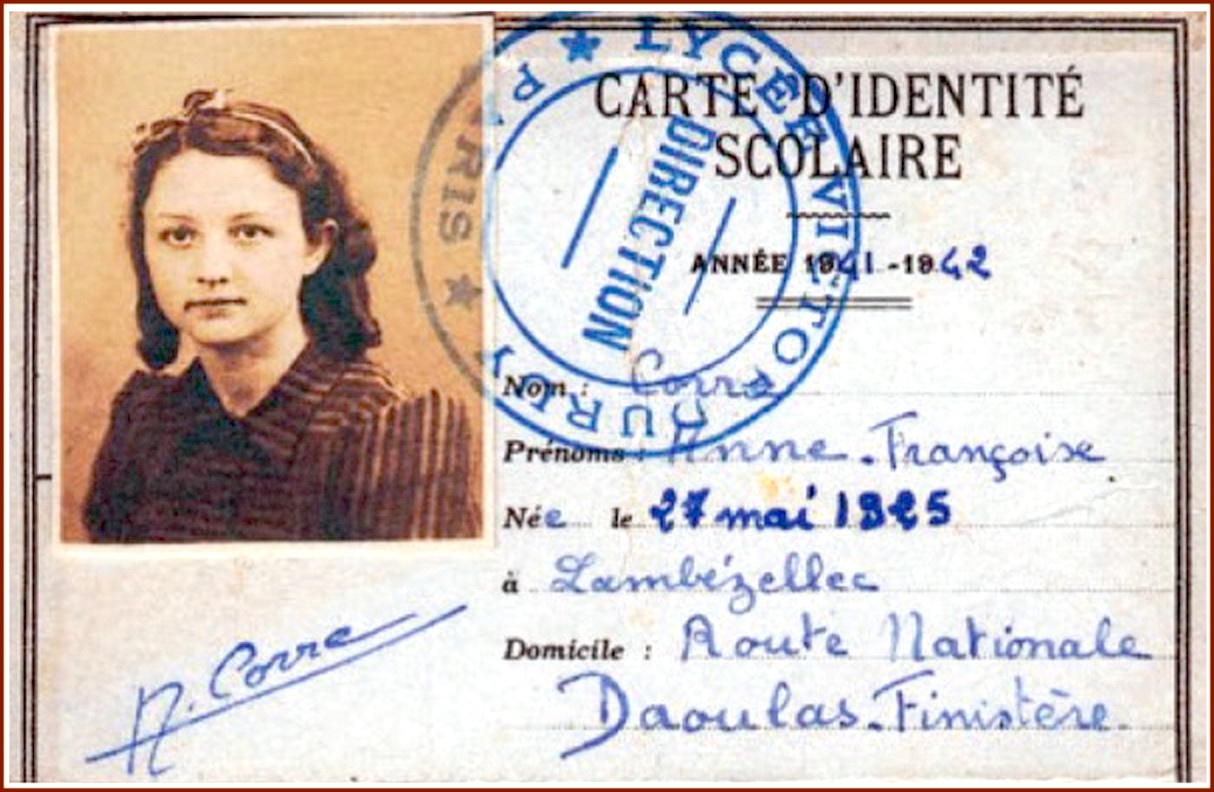 CARTE D'IDENTITÉ
SCOLAIRE
ANNÉE 1941-1942
Nom : Corre
Prénoms : Anne-Françoise
Née le 27 mai 1925
à Lambézellec
Domicile : Route Nationale
Daoulas-Finistère.
A. Corre
★ LYCÉE VICTOR DURUY ★ PARIS
DIRECTION